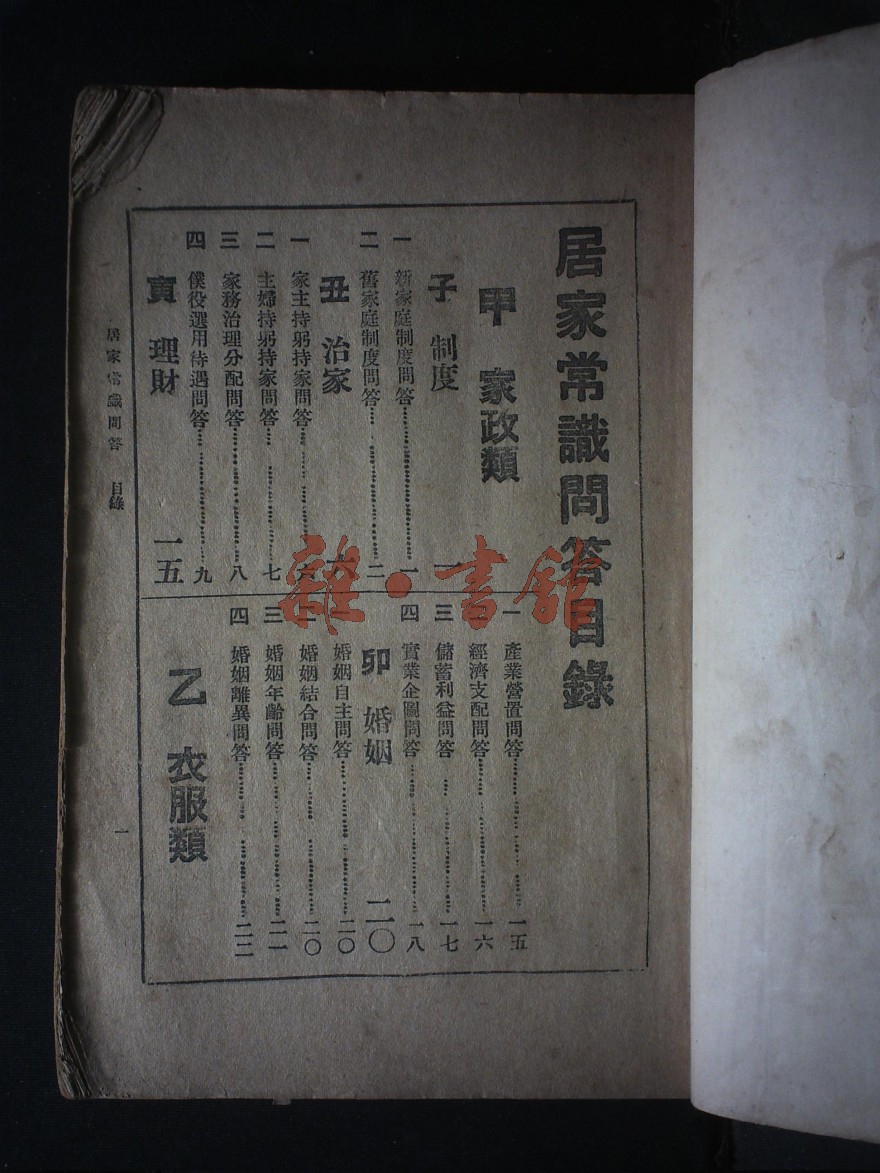 居家常識問答目錄
甲 家政類
子 制度 一
一 新家庭制度問答 一
二 舊家庭制度問答 二
丑 治家 六
一 家主持躬持家問答 六
二 主婦持躬持家問答 七
三 家務治理分配問答 八
四 僕役選用待遇問答 九
寅 理財 一五
一 產業營置問答 一五
二 經濟支配問答 一六
三 儲蓄利益問答 一七
四 實業企圖問答 一八
卯 婚姻 二〇
一 婚姻自主問答 二〇
二 婚姻結合問答 二〇
三 婚姻年齡問答 二一
四 婚姻離異問答 二二
乙 衣服類
居家常識問答 目錄
一
雜·書館